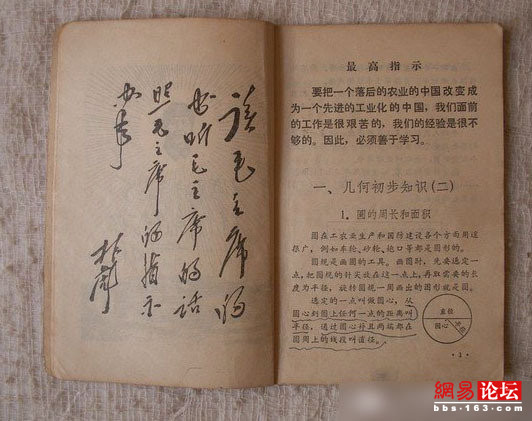 读毛主席的
书听毛主席的话
照毛主席的指示
办事
林彪
最高指示
要把一个落后的农业的中国改变成
为一个先进的工业化的中国，我们面前
的工作是很艰苦的，我们的经验是很不
够的。因此，必须善于学习。
一、几何初步知识（二）
1．圆的周长和面积
圆在工农业生产和国防建设各个方面用途
很广，例如车轮、砂轮、炮口等都是圆形的。
圆规是画圆的工具。画圆时，先要选定一
点，把圆规的针尖放在这一点上，再取需要的长
度为半径，旋转圆规一周画出的图形就是圆。
选定的一点叫做圆心，从
圆心到圆上任何一点的距离叫
半径，通过圆心并且两端都在
圆周上的线段叫直径。
直径
圆心 半径
·1·
網易论坛
bbs·163·com